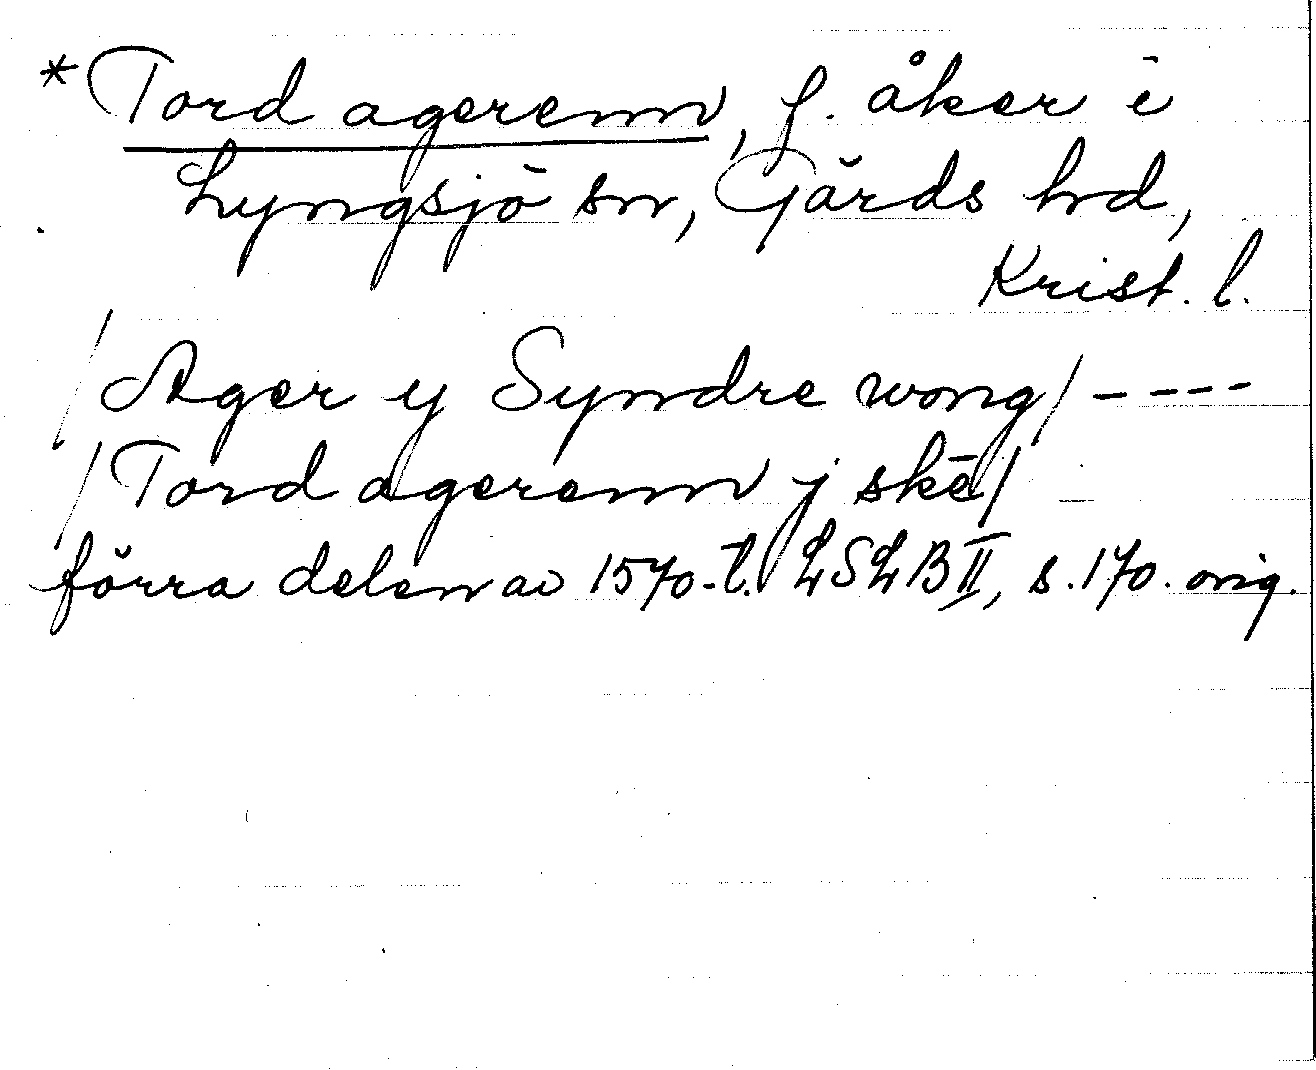 *Tord agerenn, f. åker i
Lyngsjö sn, Gärds hd,
Krist. l.
/Ager y Syndre wong/ ----
/Tord agerenn j skē/
förra delen av 1570-t. LSLB II, s. 170. orig.